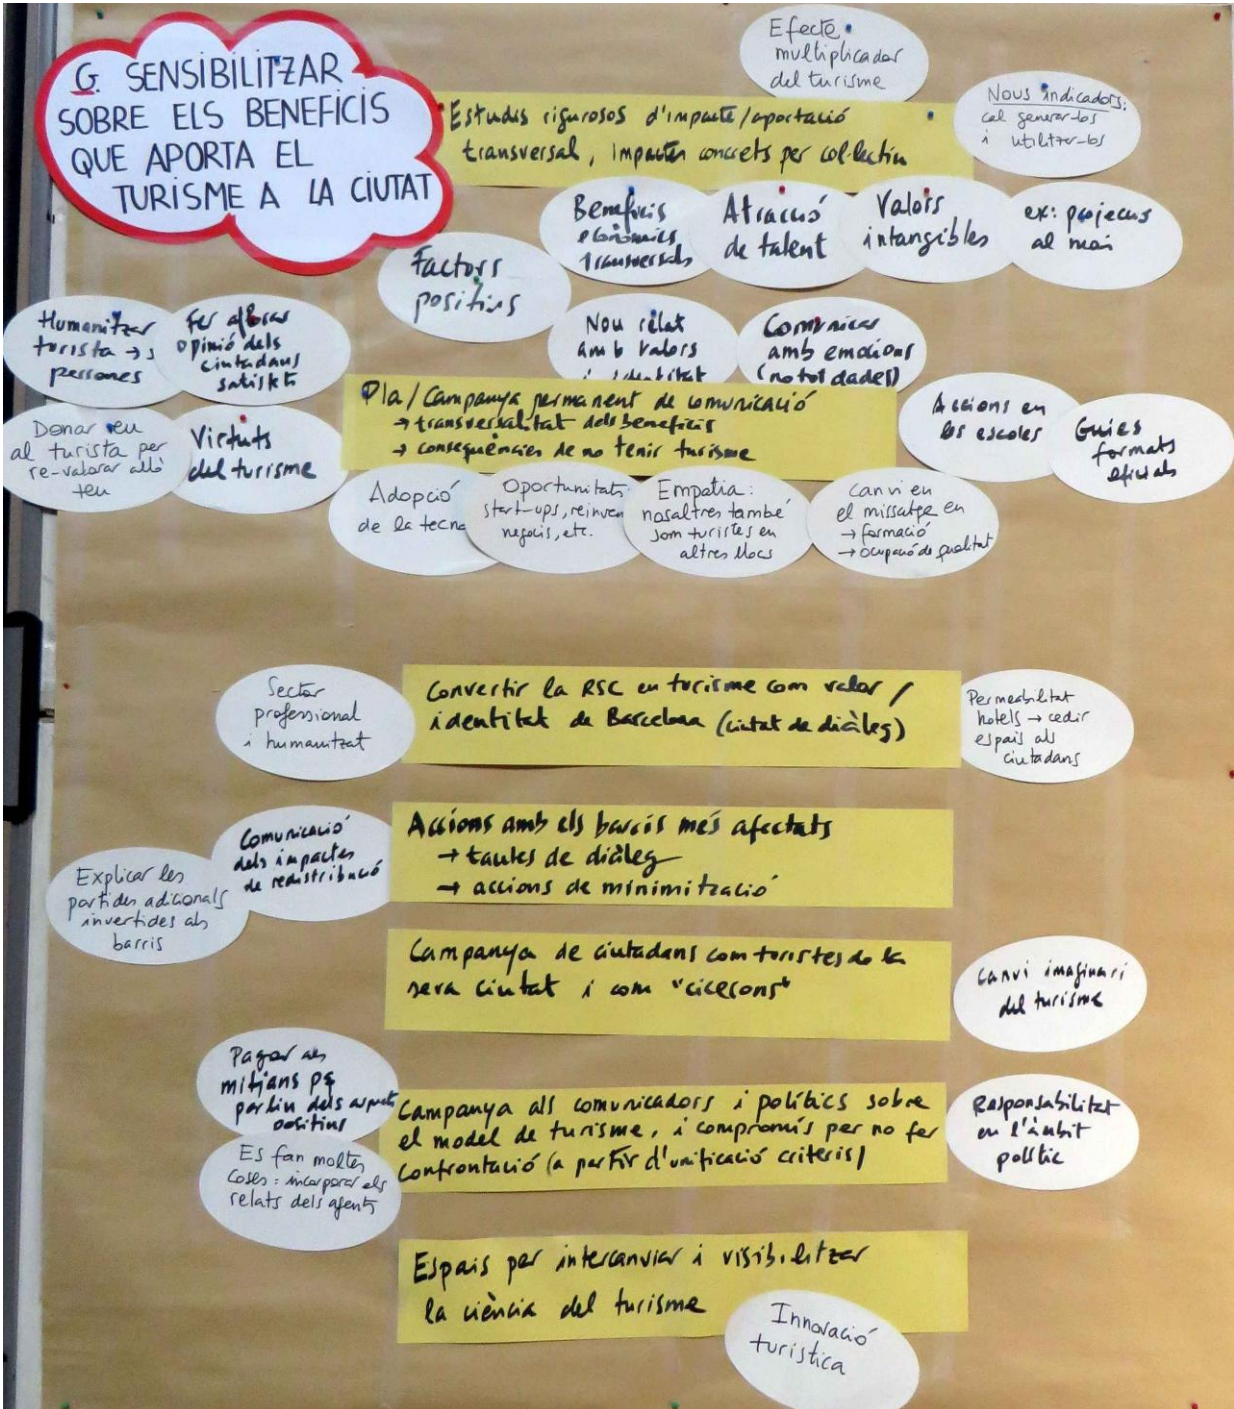 G. SENSIBILITZAR
SOBRE ELS BENEFICIS
QUE APORTA EL
TURISME A LA CIUTAT
Efecte
multiplicador
del turisme
Estudis rigurosos d'impacte/aportació
transversal, impactes concrets per col·lectiu
Nous indicadors:
cal generar-los
i utilitzar-los
Factors
positius
Beneficis
econòmics
transversals
Atracció
de talent
Valors
intangibles
ex: projectes
al món
Humanitzar
turista → s
persones
Fer aflorar
opinió dels
ciutadans
satisfets
Nou relat
amb valors
i identitat
Comunicar
amb emocions
(no tot dades)
Donar veu
al turista per
re-valorar allò
teu
Virtuts
del turisme
Pla/Campanya permanent de comunicació
→ transversalitat dels beneficis
→ conseqüències de no tenir turisme
Accions en
les escoles
Guies
formats
oficials
Adopció
de la tecno
Oportunitats:
start-ups, reinven
negocis, etc.
Empatia:
nosaltres també
som turistes en
altres llocs
Canvi en
el missatge en
→ formació
→ ocupació de qualitat
Sector
professional
i humanitzat
Convertir la RSC en turisme com valor /
identitat de Barcelona (ciutat de diàleg)
Permeabilitat
hotels → cedir
espais als
ciutadans
Explicar les
partides adicionals
invertides als
barris
Comunicació
dels impactes
de redistribució
Accions amb els barris més afectats
→ taules de diàleg
→ accions de minimització
Campanya de ciutadans com turistes de la
seva ciutat i com "cicerons"
Canvi imaginari
del turisme
Pagar als
mitjans pq
parlin dels aspectes
positius
Es fan moltes
coses: incorporar els
relats dels agents
Campanya als comunicadors i polítics sobre
el model de turisme, i compromís per no fer
confrontació (a partir d'unificació criteris)
Responsabilitat
en l'àmbit
polític
Espais per intercanviar i visibilitzar
la ciència del turisme
Innovació
turística